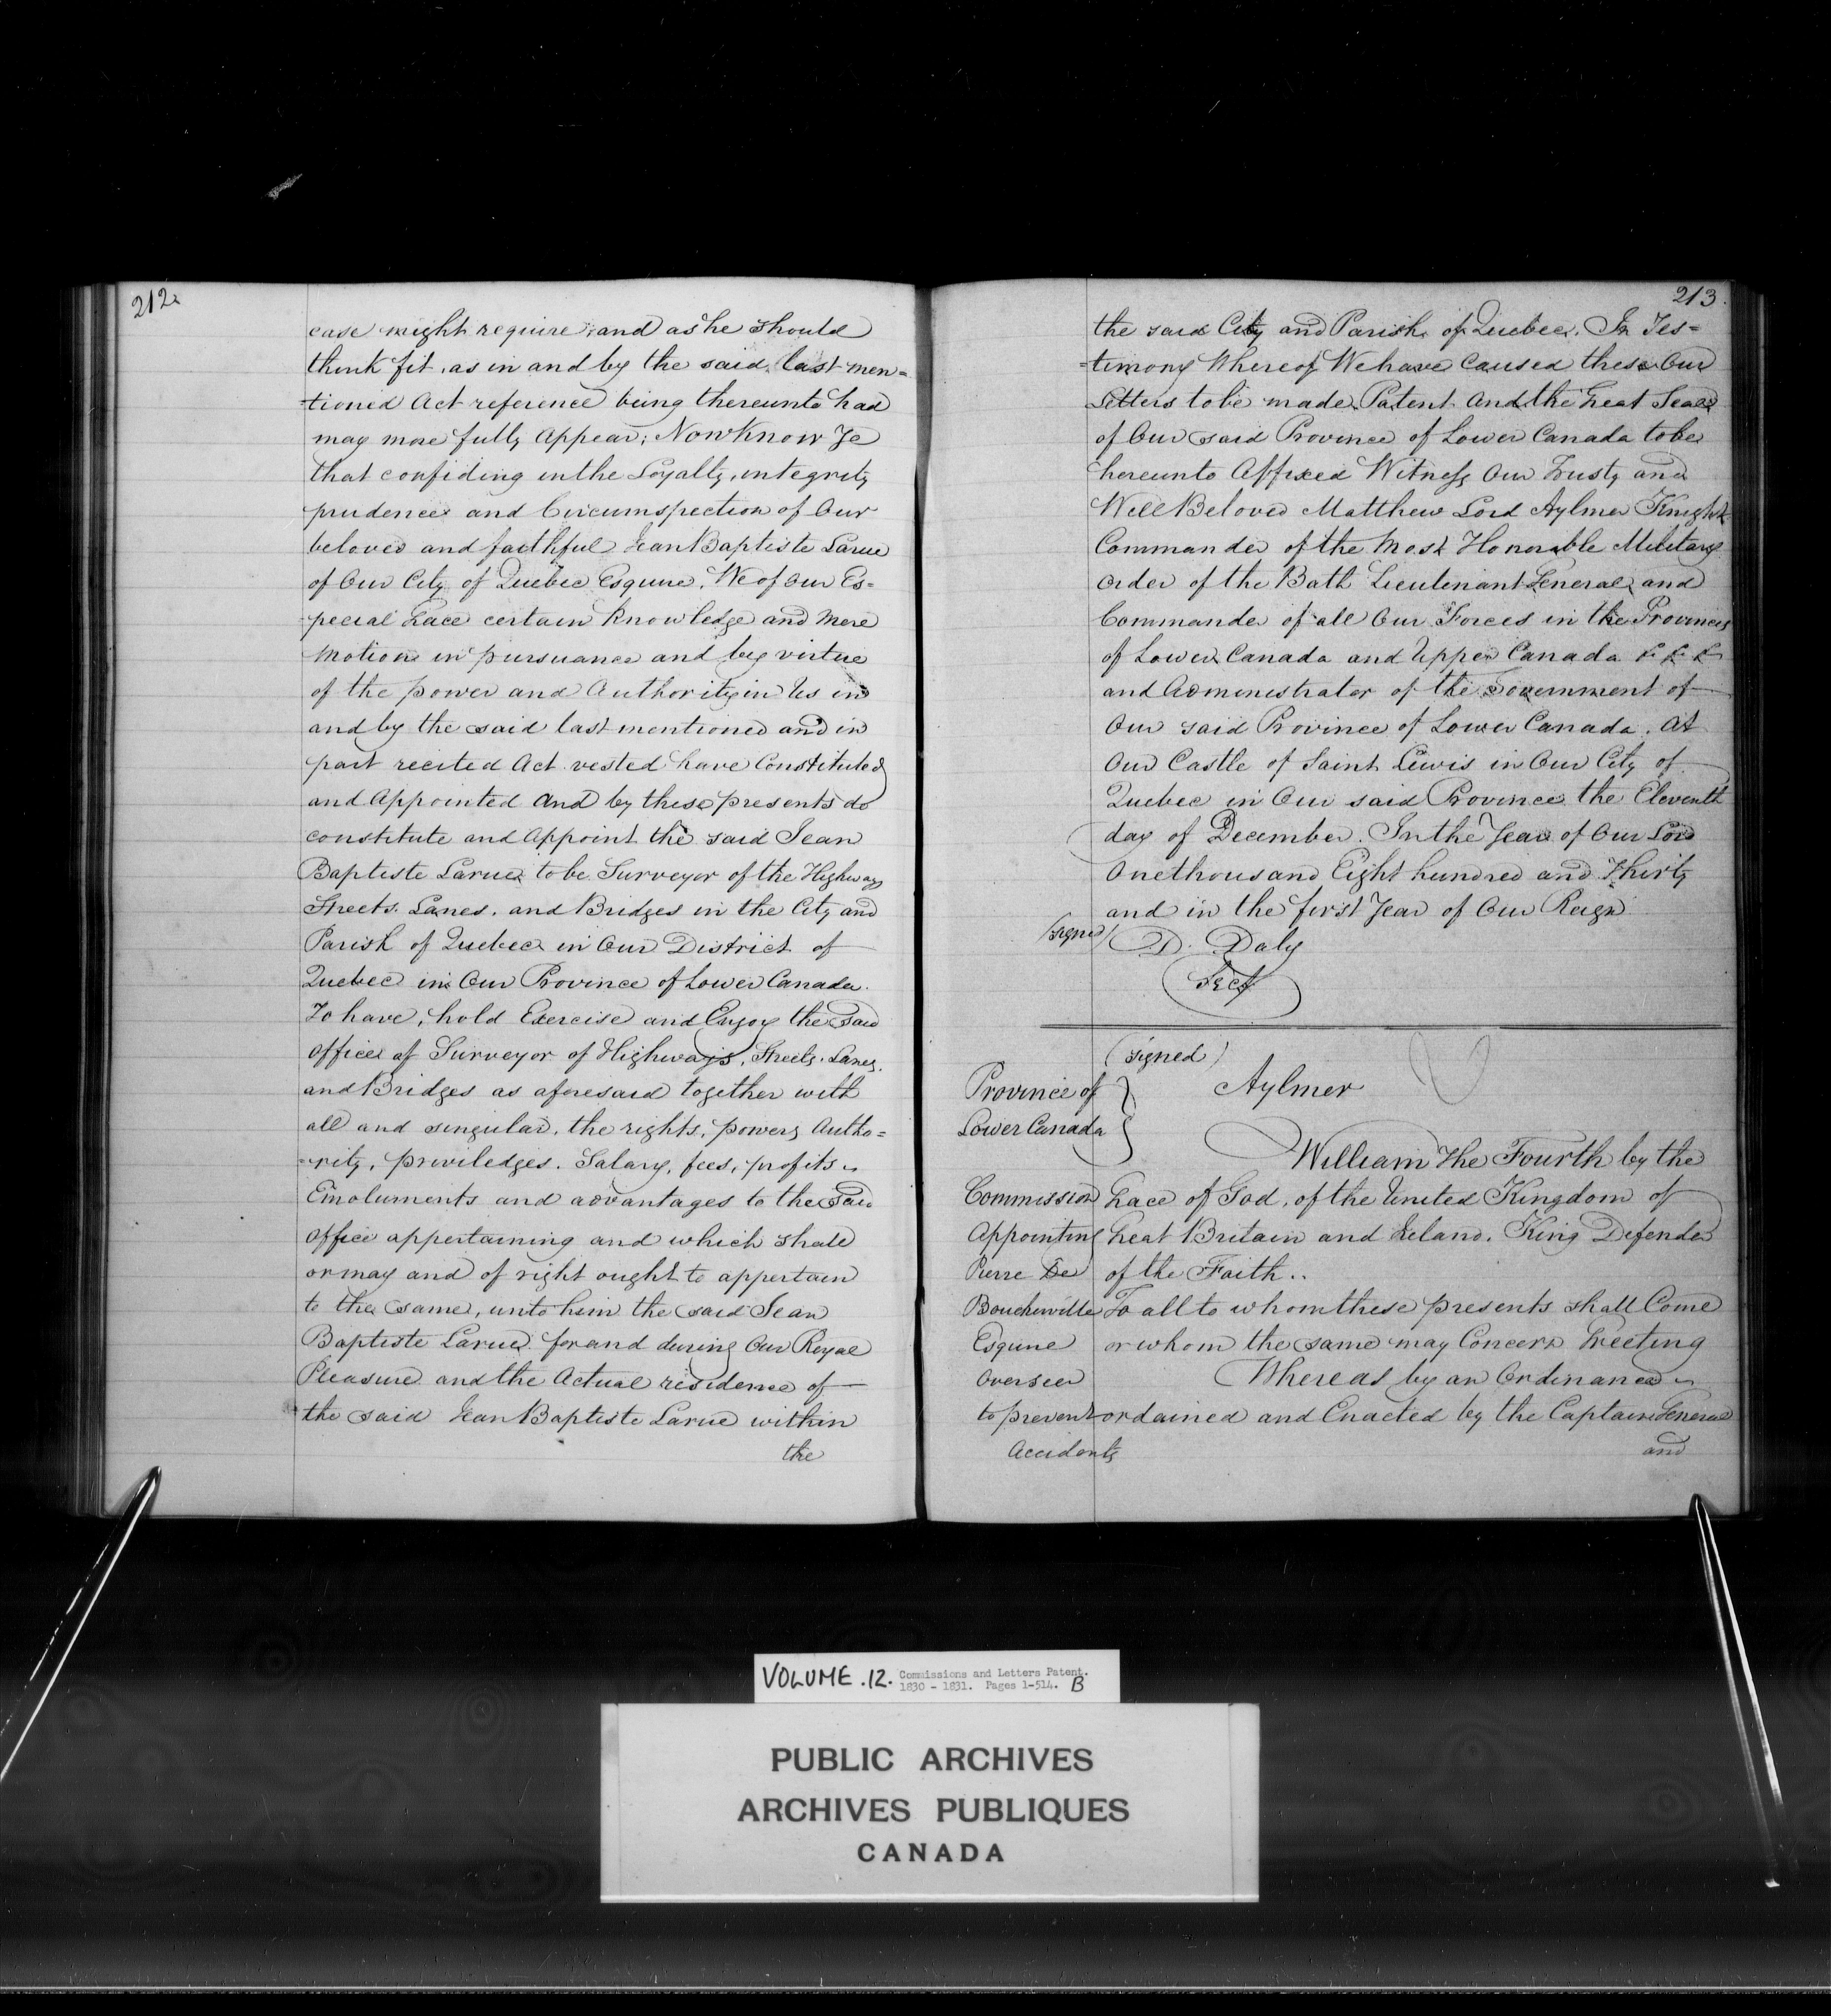 212.
case might require, and as he should
think fit, as in and by the said, last men=
=tioned Act reference being thereunto had
may more fully Appear; Now Know Ye
that confiding in the Loyalty, integrity
prudence and Circumspection of Our
beloved and faithful Jean Baptiste Larue
of Our City of Quebec Esquire, We of Our Es=
pecial Grace certain Knowledge and Mere
Motion in pursuance and by virtue
of the power and Authority in Us in
and by the said last mentioned and in
part recited Act vested have Constituted
and Appointed And by these presents do
constitute and Appoint the said Jean
Baptiste Larue to be Surveyor of the Highways
Streets. Lanes. and Bridges in the City and
Parish of Quebec in Our District of
Quebec in Our Province of Lower Canada.
To have, hold Exercise and Enjoy the said
Office of Surveyor of Highways, Streets. Lanes.
and Bridges as aforesaid together with
all and singular, the rights, powers Autho=
=rity, priviledges. Salary, fees, profits
Emoluments and advantages to the said
Office appertaining and which shall
or may and of right ought to appertain
to the same, unto him the said Jean
Baptiste Larue for and during Our Royal
Pleasure and the Actual residence of
the said Jean Baptiste Larue within
the
213.
the said City and Parish of Quebec. In Tes=
=timony Whereof We have Caused these Our
Letters to be made Patent And the Great Seal
of Our said Province of Lower Canada to be
hereunto Affixed Witness Our Trusty and
Well Beloved Matthew Lord Aylmer Knight
Commander of the Most Honorable Military
Order of the Bath Lieutenant General and
Commander of all Our Forces in the Provinces
of Lower Canada and Upper Canada & & &
and Administrator of the Government of
Our said Province of Lower Canada. At
Our Castle of Saint Lewis in Our City of
Quebec in Our said Province the Eleventh
day of December. In the Year of Our Lord
One thousand Eight hundred and Thirty
and in the first Year of Our Reign
(signed) D. Daly
Secy
(signed)
Province of Aylmer
Lower Canada
William The Fourth by the
Commission Grace of God, of the United Kingdom of
Appointing Great Britain and Ireland. King Defender
Pierre De of the Faith..
Boucherville To all to whom these presents shall Come
Esquire or whom the same may Concern Greeting
Overseer Whereas by an Ordinance
to prevent ordained and Enacted by the Captain General
Accidents and
VOLUME .12. Commissions and Letters Patent.
1830 - 1831. Pages 1-514. B
PUBLIC ARCHIVES
ARCHIVES PUBLIQUES
CANADA